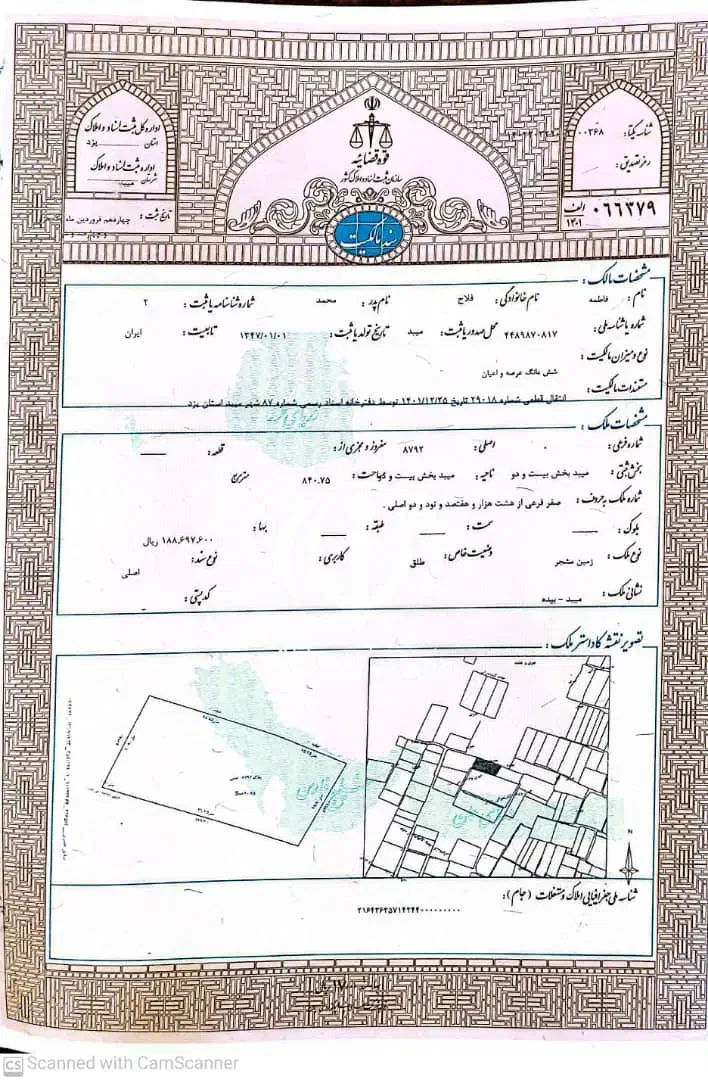 اداره کل ثبت اسناد و املاک
استان یزد
اداره ثبت اسناد و املاک
شهرستان میبد
تاریخ ثبت : چهاردهم فروردین ماه
قوه قضائیه
سازمان ثبت اسناد و املاک کشور
سند مالکیت
شناسه یکتا :
رمز تصدیق :
۰۶۶۳۷۹ الف
۱۴۰۱
مشخصات مالک :
نام : فاطمه نام خانوادگی : فلاح نام پدر : محمد شماره شناسنامه یا ثبت : ۲
شماره یا شناسه ملی : ۴۴۸۹۸۷۰۸۱۷ محل صدور یا ثبت : میبد تاریخ تولد یا ثبت : ۱۳۴۷/۰۱/۰۱ تابعیت : ایران
نوع و میزان مالکیت :
شش دانگ عرصه و اعیان
مستندات مالکیت :
انتقال قطعی شماره ۲۹۰۱۸ تاریخ ۱۴۰۱/۱۲/۲۵ توسط دفترخانه اسناد رسمی شماره ۸۷ شهر میبد استان یزد
مشخصات ملک :
شماره فرعی : ۰ اصلی : ۸۷۹۲ مفروز و مجزی از : قطعه :
بخش ثبتی : میبد بخش بیست و دو ناحیه : میبد بخش بیست و دو مساحت : ۸۴۰.۷۵ مترمربع
شماره ملک به حروف : صفر فرعی از هشت هزار و هفتصد و نود و دو اصلی .
بلوک : سمت : طبقه : بها :
۱۸۸,۶۹۷,۶۰۰ ریال
نوع ملک : زمین مشجر وضعیت خاص : طلق کاربری : نوع سند :
اصلی
نشانی ملک : میبد - بیده کد پستی :
تصویر نقشه کاداستر ملک :
N
شناسه ملی جغرافیایی املاک و مستغلات (جام) :
CS Scanned with CamScanner